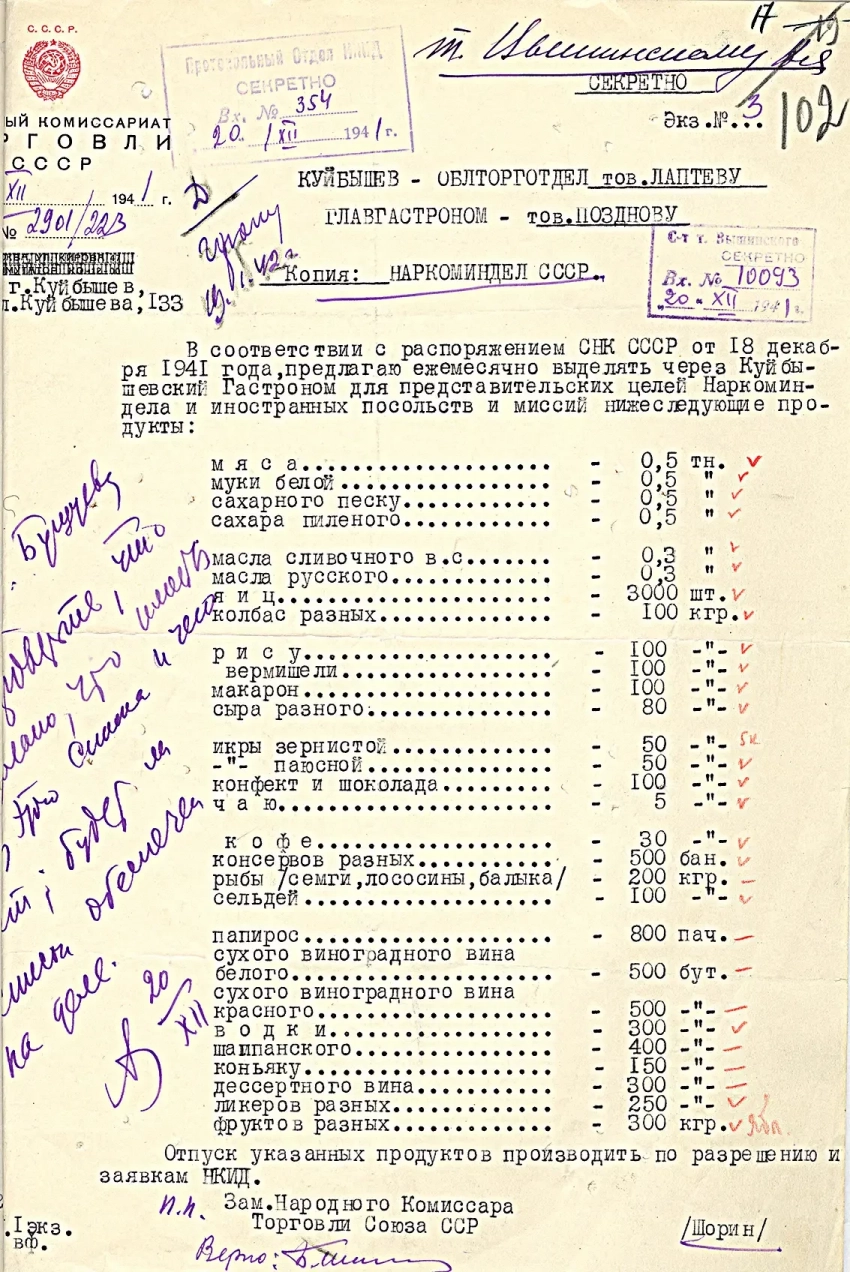 С.С.С.Р.
17
т. Цышинскому
СЕКРЕТНО
Экз.№...3
102
Протокольный Отдел НКИД
СЕКРЕТНО
Вх. № 354
20 /XII 1941 г.
ЫЙ КОМИССАРИАТ
РГОВЛИ
СССР
XII 1941 г.
№ 2901/223
г.Куйбышев,
л.Куйбышева,133
КУЙБЫШЕВ - ОБЛТОРГОТДЕЛ тов.ЛАПТЕВУ
ГЛАВГАСТРОНОМ - тов.ПОЗДНОВУ
Копия: НАРКОМИНДЕЛ СССР.
С-т т. Вышинского
СЕКРЕТНО
Вх. № 10093
"20" XII 1941 г.
В соответствии с распоряжением СНК СССР от 18 декаб-
ря 1941 года,предлагаю ежемесячно выделять через Куйбы-
шевский Гастроном для представительских целей Наркомин-
дела и иностранных посольств и миссий нижеследующие про-
дукты:
м я с а................... - 0,5 тн.
муки белой................ - 0,5 "
сахарного песку........... - 0,5 "
сахара пиленого........... - 0,5 "
масла сливочного в.с...... - 0,3 "
масла русского............ - 0,3 "
я и ц..................... - 3000 шт.
колбас разных............. - 100 кгр.
р и с у................... - 100 -"-
вермишели................. - 100 -"-
макарон................... - 100 -"-
сыра разного.............. - 80 -"-
икры зернистой............ - 50 -"-
-"- паюсной............... - 50 -"-
конфект и шоколада........ - 100 -"-
ч а ю..................... - 5 -"-
к о ф е................... - 30 -"-
консервов разных.......... - 500 бан.
рыбы /семги,лососины,балыка/ - 200 кгр.
сельдей................... - 100 -"-
папирос................... - 800 пач.
сухого виноградного вина
белого.................... - 500 бут.
сухого виноградного вина
красного.................. - 500 -"-
в о д к и................. - 300 -"-
шампанского............... - 400 -"-
коньяку................... - 150 -"-
дессертного вина.......... - 300 -"-
ликеров разных............ - 250 -"-
фруктов разных............ - 300 кгр.
что
будет ли
на деле.
20
XII
Отпуск указанных продуктов производить по разрешению и
заявкам НКИД.
п.п. Зам.Народного Комиссара
Торговли Союза ССР
/Шорин/
.1экз.
вф.
Верно: